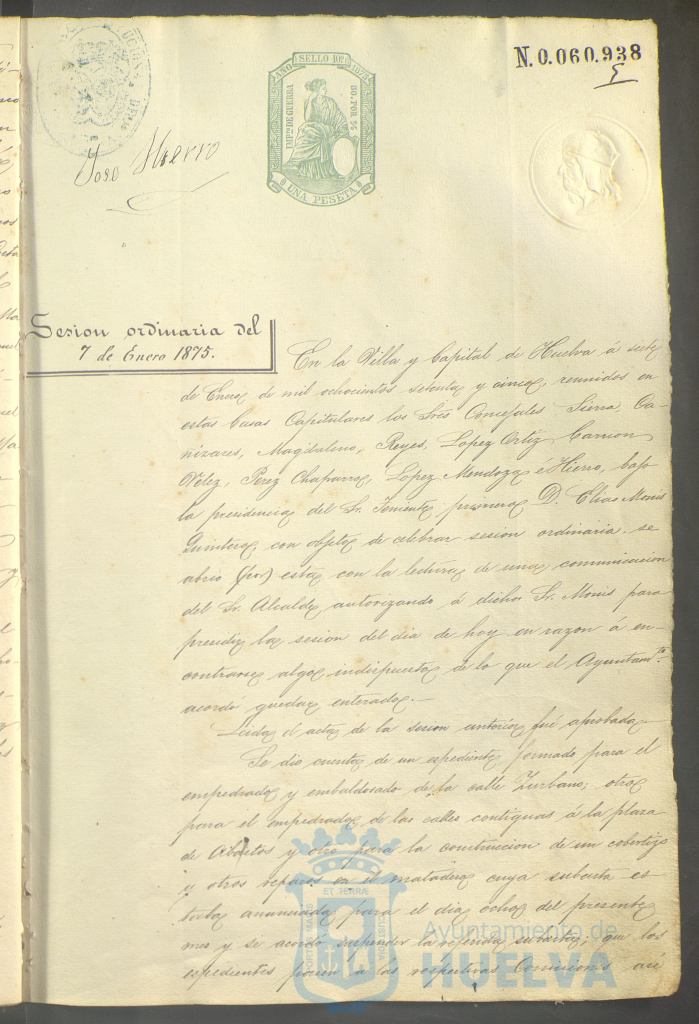 N.0.060.938
5
AÑO SELLO 10º 1875
IMPTO DE GUERRA
50. POR %
UNA PESETA
Jose Hierro
Sesion ordinaria del
7 de Enero 1875.
En la Villa y Capital de Huelva á siete
de Enero de mil ochocientos setenta y cinco, reunidos en
estas Casas Capitulares los Sres Concejales Sierra, Ca-
ñizares, Magdaleno, Reyes, Lopez Ortiz, Carrion
Velez, Perez Chaparro, Lopez Mendoza é Hierro, bajo
la presidencia del Sr. Teniente primero D. Elias Monis
Quintero, con objeto de celebrar sesion ordinaria. se
abrió (por) esta con la lectura de una comunicacion
del Sr. Alcalde autorizando á dicho Sr. Monis para
presidir la sesion del dia de hoy en razon á en-
contrarse algo indispuesto de lo que el Ayuntamto.
acordó quedar enterado.—
Leida el acta de la sesion anterior fué aprobada—
Se dió cuenta de un espediente formado para el
empedrado y embaldosado de la calle Zurbano; otro
para el empedrado de las calles contiguas á la plaza
de Abastos y otro para la construccion de un cobertizo
y otros reparos en el matadero cuya subasta es-
taba anunciada para el dia ocho del presente
mes y se acordó suspender la referida subasta; que los
espedientes pasen á las respectivas Comisiones así
PORTUS MARIS
ET TERRÆ
CUSTODIA
Ayuntamiento de
HUELVA